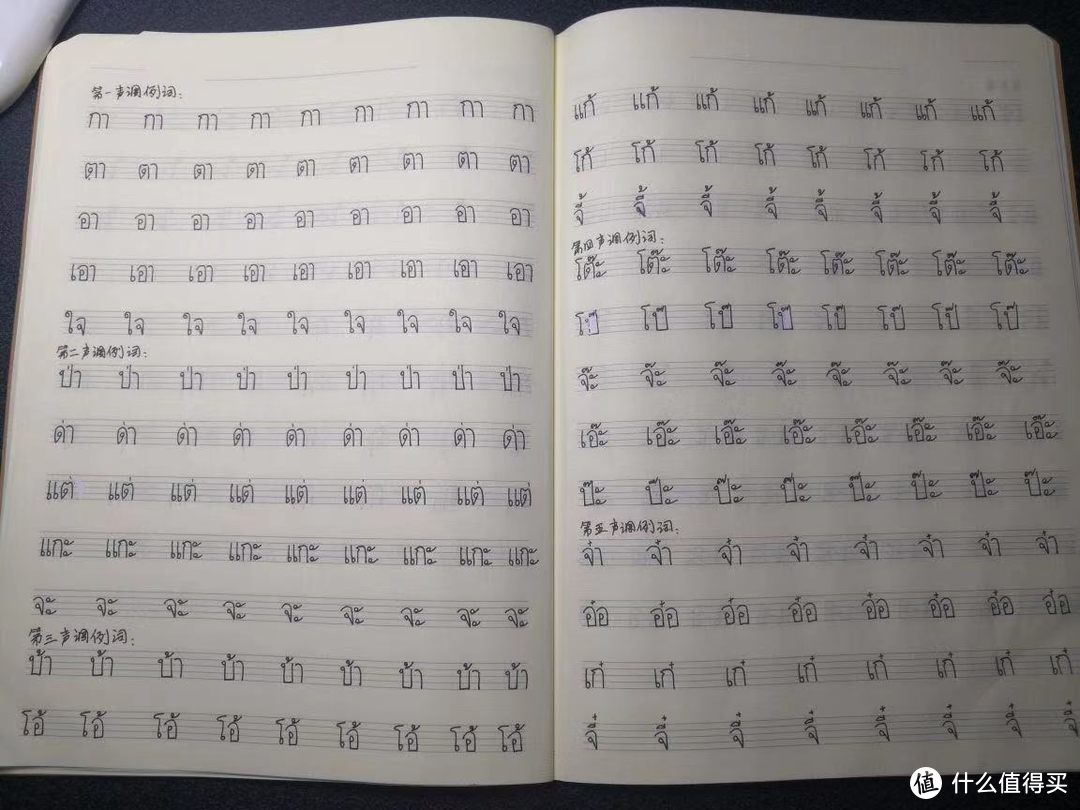 第一声调例词:
กา กา กา กา กา กา กา กา กา
ตา ตา ตา ตา ตา ตา ตา ตา ตา
อา อา อา อา อา อา อา อา อา
เอา เอา เอา เอา เอา เอา เอา เอา เอา
ใจ ใจ ใจ ใจ ใจ ใจ ใจ ใจ ใจ
第二声调例词:
ป่า ป่า ป่า ป่า ป่า ป่า ป่า ป่า ป่า
ด่า ด่า ด่า ด่า ด่า ด่า ด่า ด่า ด่า
แต่ แต่ แต่ แต่ แต่ แต่ แต่ แต่ แต่
แกะ แกะ แกะ แกะ แกะ แกะ แกะ แกะ แกะ
จะ จะ จะ จะ จะ จะ จะ จะ จะ
第三声调例词:
บ้า บ้า บ้า บ้า บ้า บ้า บ้า บ้า บ้า
โอ้ โอ้ โอ้ โอ้ โอ้ โอ้ โอ้ โอ้ โอ้
แก้ แก้ แก้ แก้ แก้ แก้ แก้ แก้
โก้ โก้ โก้ โก้ โก้ โก้ โก้ โก้
จี้ จี้ จี้ จี้ จี้ จี้ จี้ จี้
第四声调例词:
โต๊ะ โต๊ะ โต๊ะ โต๊ะ โต๊ะ โต๊ะ โต๊ะ โต๊ะ
โป๊ โป๊ โป๊ โป๊ โป๊ โป๊ โป๊ โป๊
จ๊ะ จ๊ะ จ๊ะ จ๊ะ จ๊ะ จ๊ะ จ๊ะ จ๊ะ
เอ๊ะ เอ๊ะ เอ๊ะ เอ๊ะ เอ๊ะ เอ๊ะ เอ๊ะ เอ๊ะ
ป๊ะ ป๊ะ ป๊ะ ป๊ะ ป๊ะ ป๊ะ ป๊ะ ป๊ะ
第五声调例词:
จ๋า จ๋า จ๋า จ๋า จ๋า จ๋า จ๋า จ๋า
อ๋อ อ๋อ อ๋อ อ๋อ อ๋อ อ๋อ อ๋อ อ๋อ
เก๋ เก๋ เก๋ เก๋ เก๋ เก๋ เก๋ เก๋
จี๋ จี๋ จี๋ จี๋ จี๋ จี๋ จี๋ จี๋
值 什么值得买